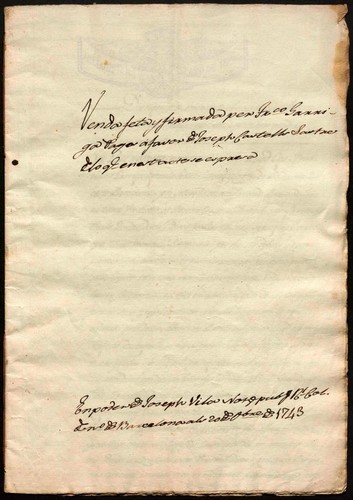 Venda feta y firmada per Fr.co Garri-
ga Pages a favor de Joseph Castells Sastre
de lo q. en est acte se espresa
En poder de Joseph Vila Not. pub.
de Barcelona als 20 de 8bre de 1743